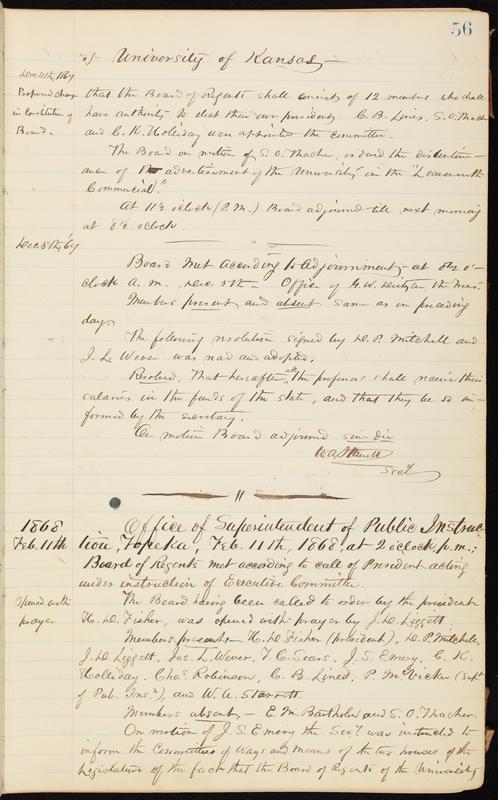 56
of University of Kansas
Dec. 4th, 1867
Proposed change
in Constitution of
Board.
that the Board of Regents shall consist of 12 members who shall
have authority to elect their own president. C. B. Lines, S. O. Thacher
and C. K. Holliday were appointed the committee.
The Board on motion of S. O. Thacher, ordered the discontinu-
ance of the advertisement of the University in the "Leavenworth
Commercial."
At 11½ o'clock (P.M.) Board adjourned till next morning
at 8½ o'clock.
Dec. 5th, '67
Board met according to adjournment at 8½ o'-
clock a. m., Dec. 5th — Office of G. W. Deitzler, the Treas.
Members present and absent same as on preceding
day.
The following resolution signed by D. P. Mitchell and
J. L. Wever was read and adopted:
Resolved, That hereafter all the professors shall receive their
salaries in the funds of the state, and that they be so in-
formed by the secretary.
On motion Board adjourned sine die
W. A. Starrett
Sec'y
1868
Feb. 11th
Office of Superintendent of Public Instruc-
tion, Topeka, Feb. 11th, 1868, at 2 o'clock, p.m.;
Board of Regents met according to call of President acting
under instruction of Executive Committee.
Opened with
prayer
The Board having been called to order by the president
H. D. Fisher, was opened with prayer by J. D. Liggett.
Members present H. D. Fisher (president), D. P. Mitchell,
J. D. Liggett, Jos. L. Wever, T. C. Sears, J. S. Emery, C. K.
Holliday, Chas. Robinson, C. B. Lines, P. McVicker (Supt
of Pub. Ins.), and W. A. Starrett.
Members absent — E. M. Bartholow and S. O. Thacher.
On motion of J. S. Emery the Sec'y was instructed to
inform the Committees of Ways and Means of the two houses of the
Legislature of the fact that the Board of Regents of the University